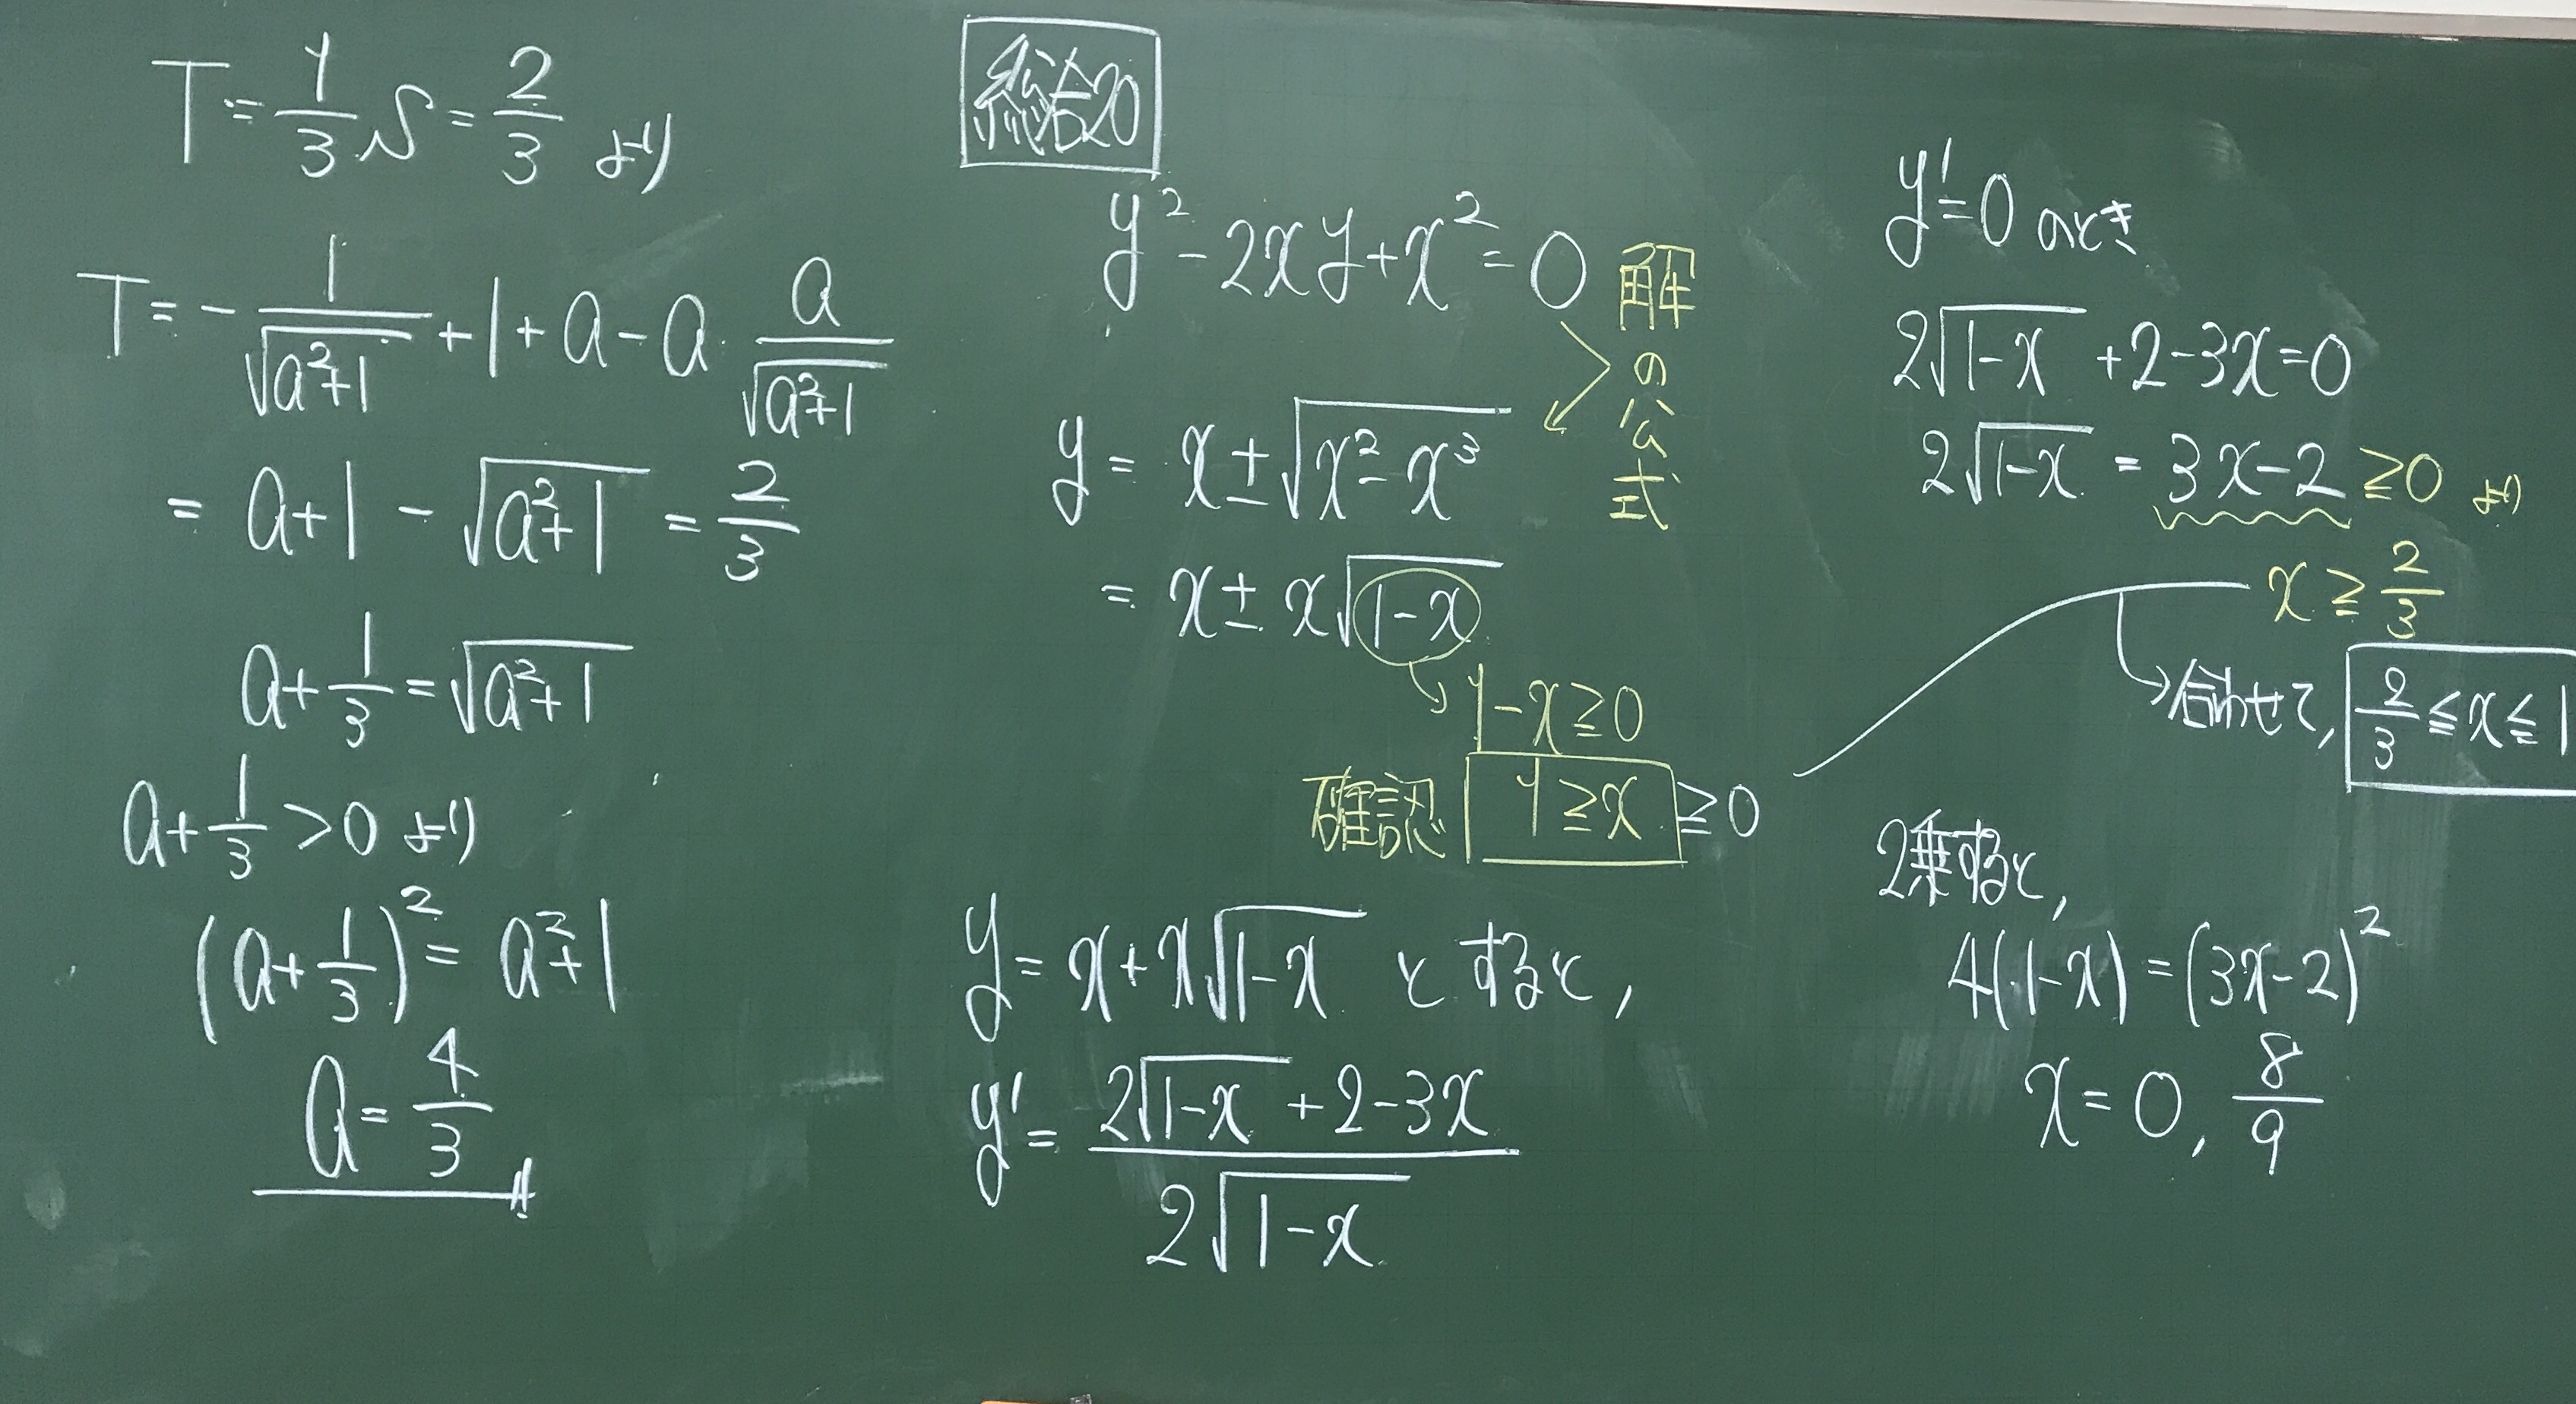 T=1/3 S=2/3 より
T=-1/√(a²+1)+1+a-a・a/√(a²+1)
=a+1-√(a²+1)=2/3
a+1/3=√(a²+1)
a+1/3>0より
(a+1/3)²=a²+1
a=4/3
総合20
y²-2xy+x²=0
解の公式
y=x±√(x²-x³)
=x±x√(1-x)
1-x≧0
確認 1≧x≧0
y=x+x√(1-x) とすると,
y'=(2√(1-x)+2-3x)/(2√(1-x))
y'=0のとき
2√(1-x)+2-3x=0
2√(1-x)=3x-2≧0より
x≧2/3
合わせて, 2/3≦x≦1
2乗すると,
4(1-x)=(3x-2)²
x=0, 8/9